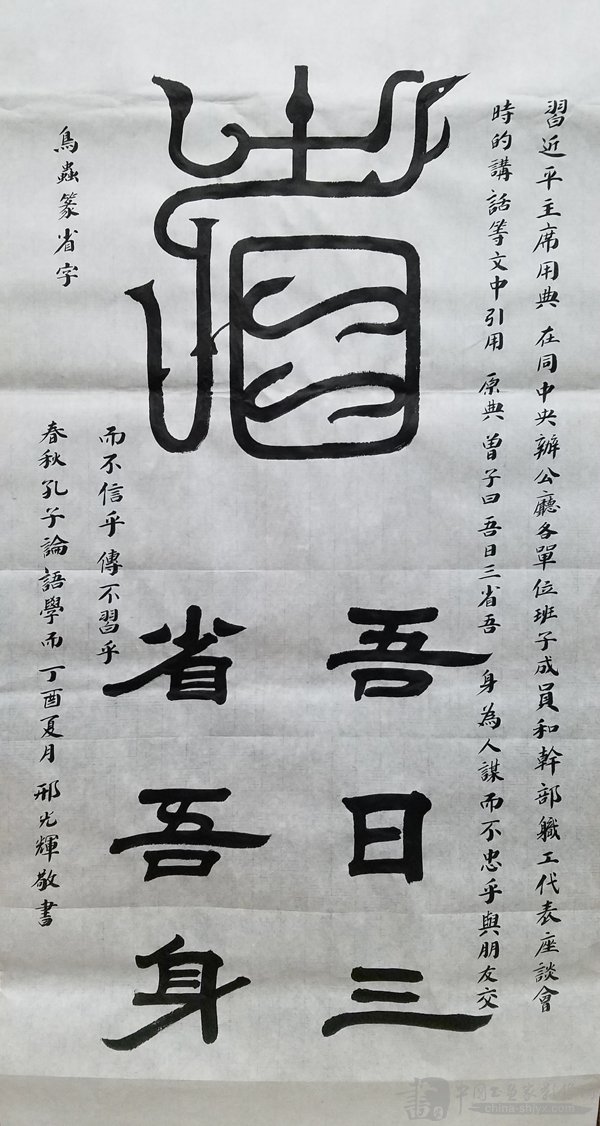 習近平主席用典 在同中央辦公廳各單位班子成員和幹部職工代表座談會
時的講話等文中引用 原典 曾子曰吾日三省吾 身為人謀而不忠乎與朋友交
而不信乎傳不習乎
省
吾日三
省吾身
鳥蟲篆省字
春秋孔子論語學而 丁酉夏月 邢光輝敬書
china-shjyx.com